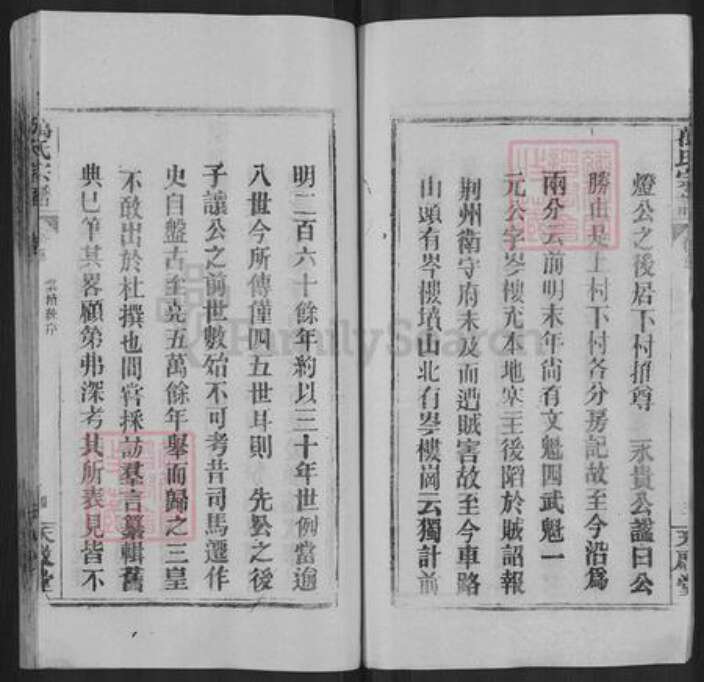 燈公之後居下村推尊 永貴公謚曰公
勝由是上村下村各分房記故至今沿為
兩分云前明末年尚有文魁四武魁一
元公字岑樓充本地寨主後陷於賊詔報
荆州衛守府未及而遭賊害故至今車路
山頭有岑樓墳山北有岑樓崗云獨計前
明二百六十餘年約以三十年世例當逾
八世今所傳僅四五世耳則 先公之後
子讓公之前世數始不可考昔司馬遷作
史自盤古至堯五萬餘年舉而歸之三皇
不敢出於杜撰也間嘗採訪羣言纂輯舊
典已筆其畧顧第弗深考其所表見皆不
FamilySearch